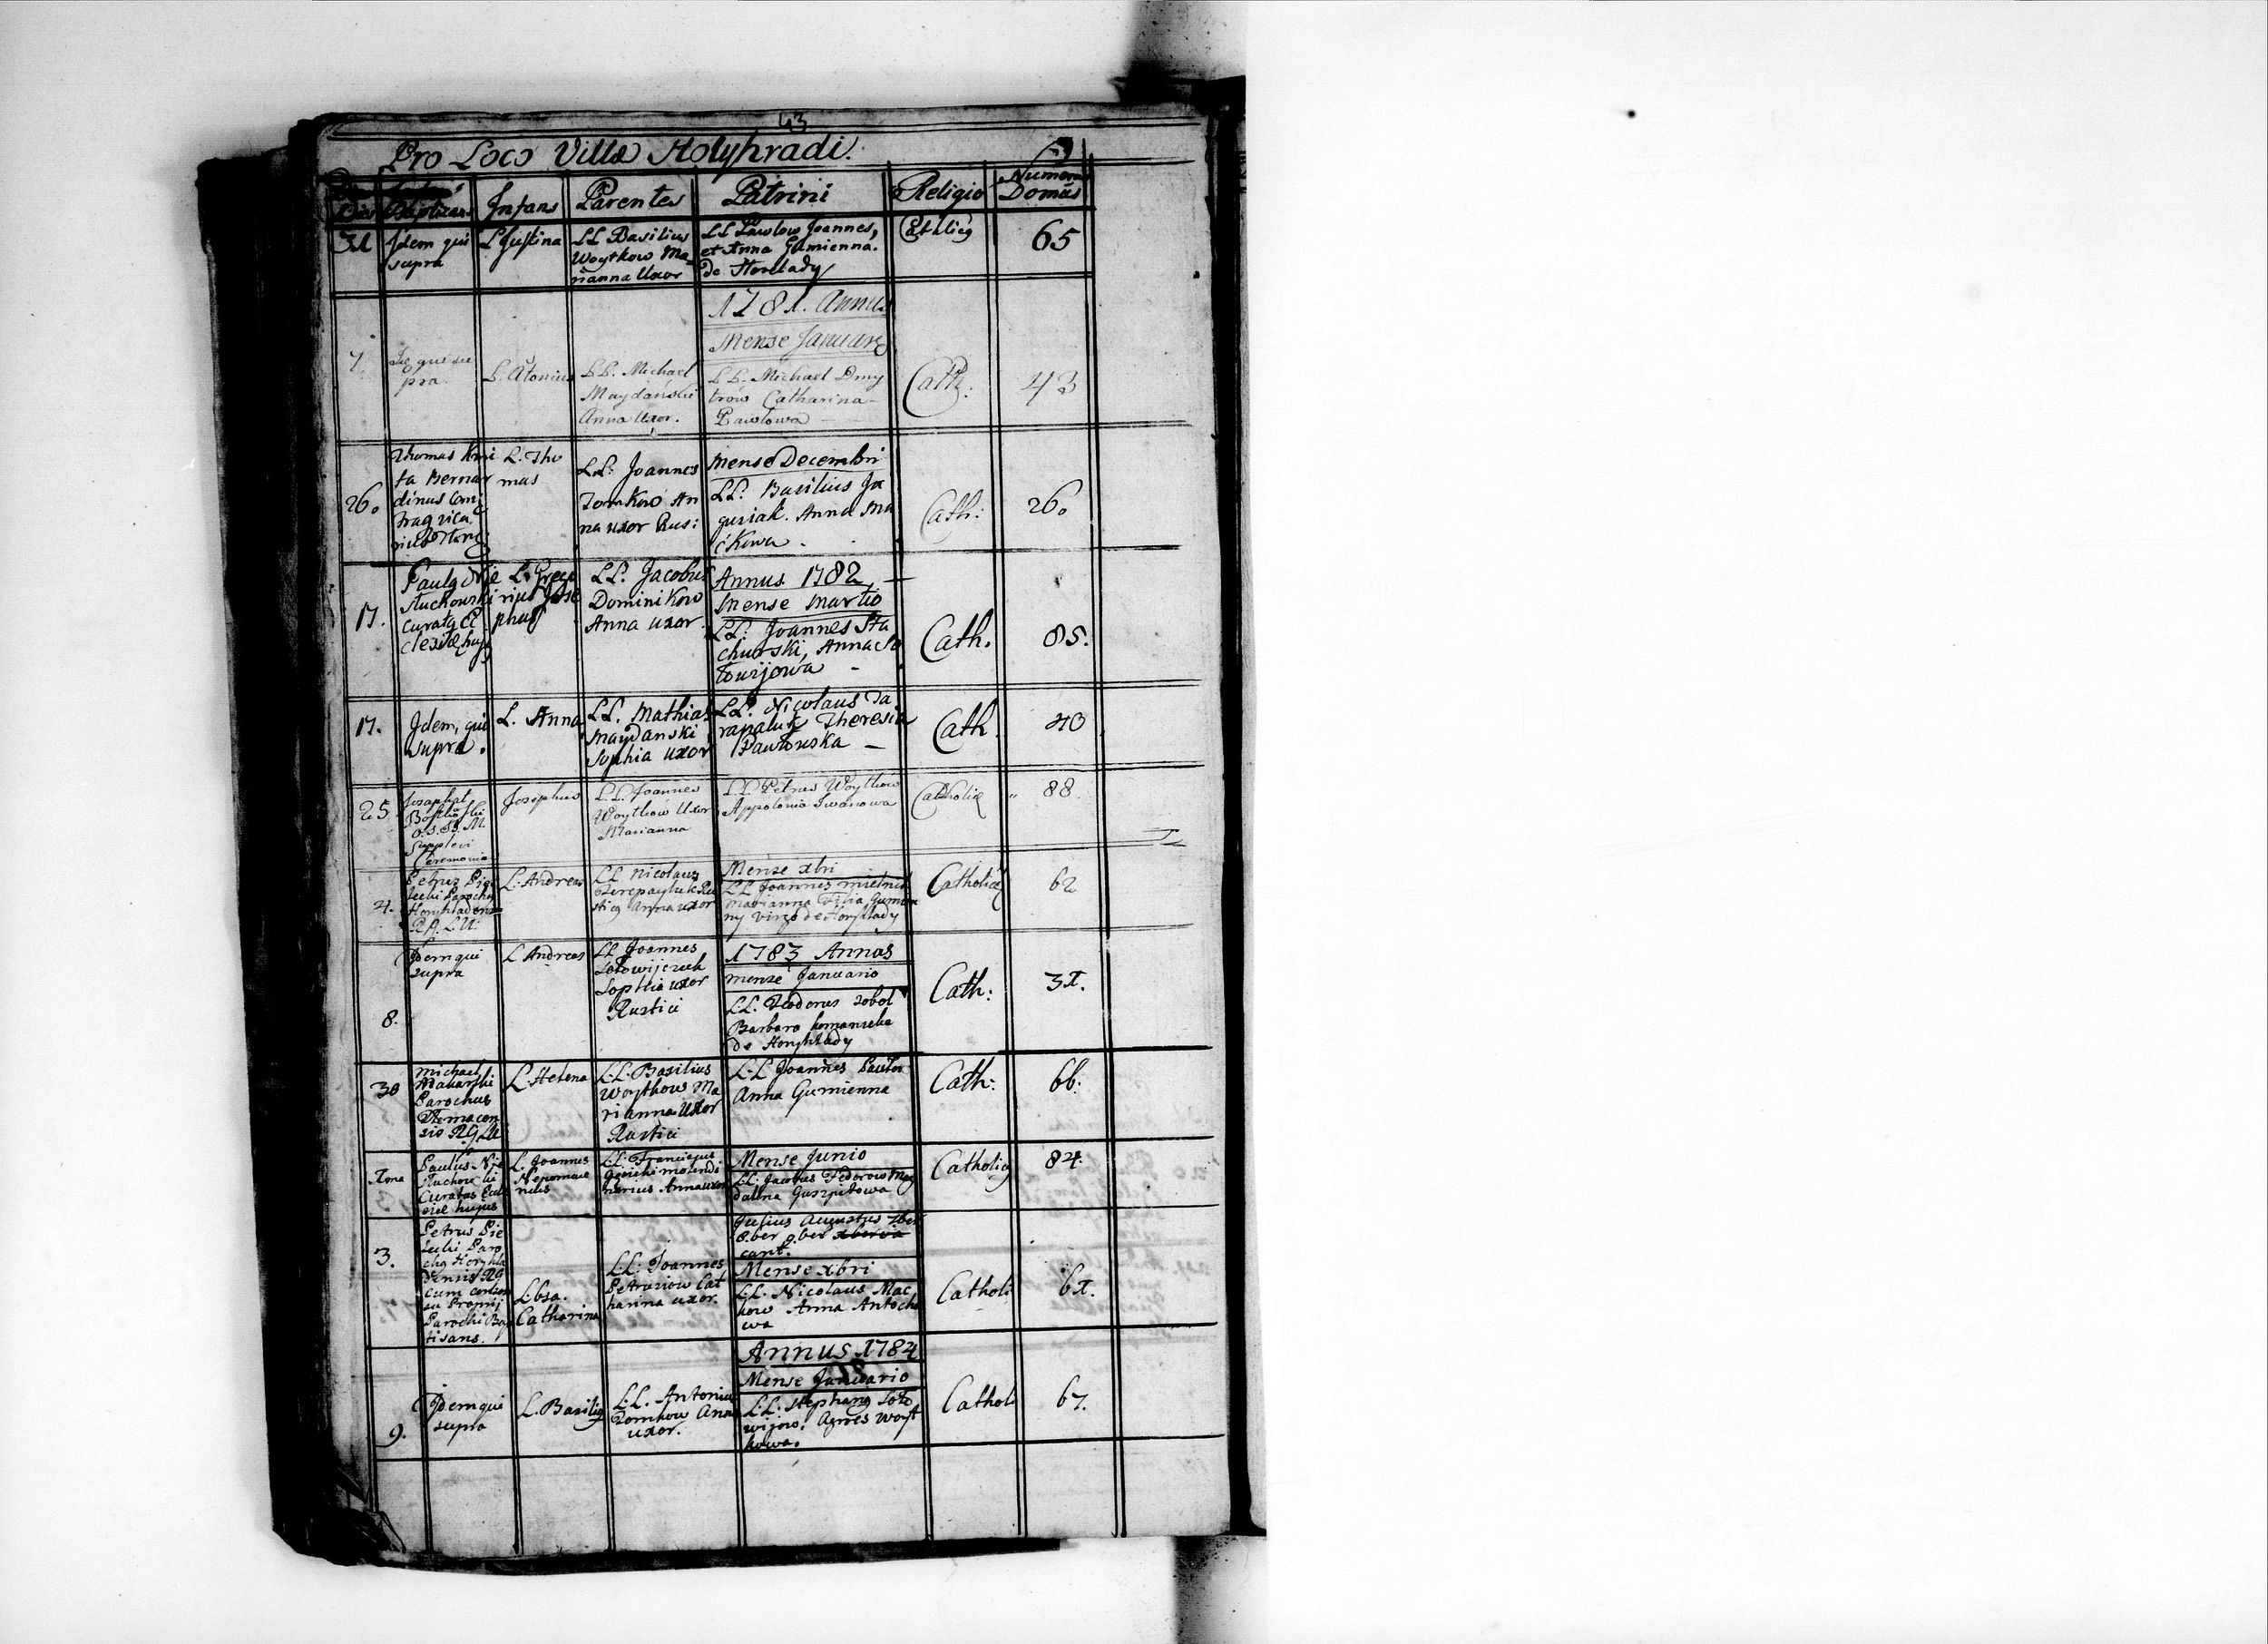 43
Pro Loco Villæ Holyhradi.
Dies Baptizans Infans Parentes Patrini Religio Numerus Domûs
31 Idem qui supra
L Justina
LL Basilius
Woytkow Ma=
rianna Uxor
LL Pawlow Joannes,
et Anna Gumienna.
de Horhlady
65
1781. Annus
Mense Januario
7 qui su
pra.
L. Atonius
L.L. Michael
Maydański
Anna Uxor.
L L. Michael Dmy
trów Catharina
Pawlowa
Cath.
43
26.
Thomas Kmi
ta Bernar
dinus
L. Tho
mas
L.L. Joannes
Tomkow An
na uxor Rusi:
Mense Decembri
LL. Basilius Ja
gusiak. Anna Ma
ćkowa.
Cath:
26.
17.
Paulg Nie
stuchowski
curatg Ec
clesiæ hujg
L. Grego
rius Jose
phus
LL. Jacobus
Dominikow
Anna uxor.
Annus 1782
Mense Martio
LL. Joannes Sta
churski, Anna So
towijowa
Cath.
85.
17.
Idem, qui
supra.
L. Anna
LL. Mathias
Maydanski
Sophia uxor
LL. Nicolaus Ta
rapaluk Theresia
Pawlowska
Cath
40
25.
Josaphat
O.S.B.M.
Supplevi
Ceremonia
Josephus
L.L. Joannes
Woytków Uxor
Marianna
L.L. Petrus Woytków
Appolonia Iwanowa
Catholicæ
88
4.
Petrus Pie
lecki Parochg
Horyhladensis
L. Andreas
LL Nicolaus
Czerepayluk Ru
sticg Anna uxor
Mense xbri
LL Joannes Mielnik
Marianna Filia Gumien
ny virgo de Horyhlady
Catholicæ
62
8.
Idem qui
supra
L Andreas
LL Joannes
Sotowijczuk
Sophia uxor
Rustici
1783 Annus
mense Januario
LL. Teodorus Sobol
Barbara Romanicha
de Horyhlady
Cath:
31.
30
Michael
Makarski
Parochus
L. Helena
L.L. Basilius
Woytkow Ma
rianna Uxor
Rustici
L.L Joannes Pawlow
Anna Gumienna
Cath:
66.
1ma
Paulus Nie
stuchowski
Curatus Eccle
siæ hujus
L. Joannes
Nepomuce
nus
L.L. Franciscus
Gorecki molendi
narius Anna uxor
Mense Junio
LL. Jacobus Fedorow Mag
dalena Guszpitowa
Catholicg
84.
3.
Petrus Pie
lecki Paro
chg Horyhla
densis RG
cum consen
su Proprij
Parochi Bap
tisans.
L.bsa.
Catharina
L.L. Joannes
Petrusiow Cat
harina uxor.
Julius Augustus 7ber
8.ber 9.ber xber va
cant.
Mense xbri
L.L. Nicolaus Mac
kow Anna Antocho
wa
Catholi
61.
9.
Idem qui
supra
L. Basilig
L.L. Antonius
Tomkow Anna
uxor.
Annus 1784
Mense Januario
L.L. Stephang Soto
wijow. Agnes Woyt
kowa.
Cathol
67.